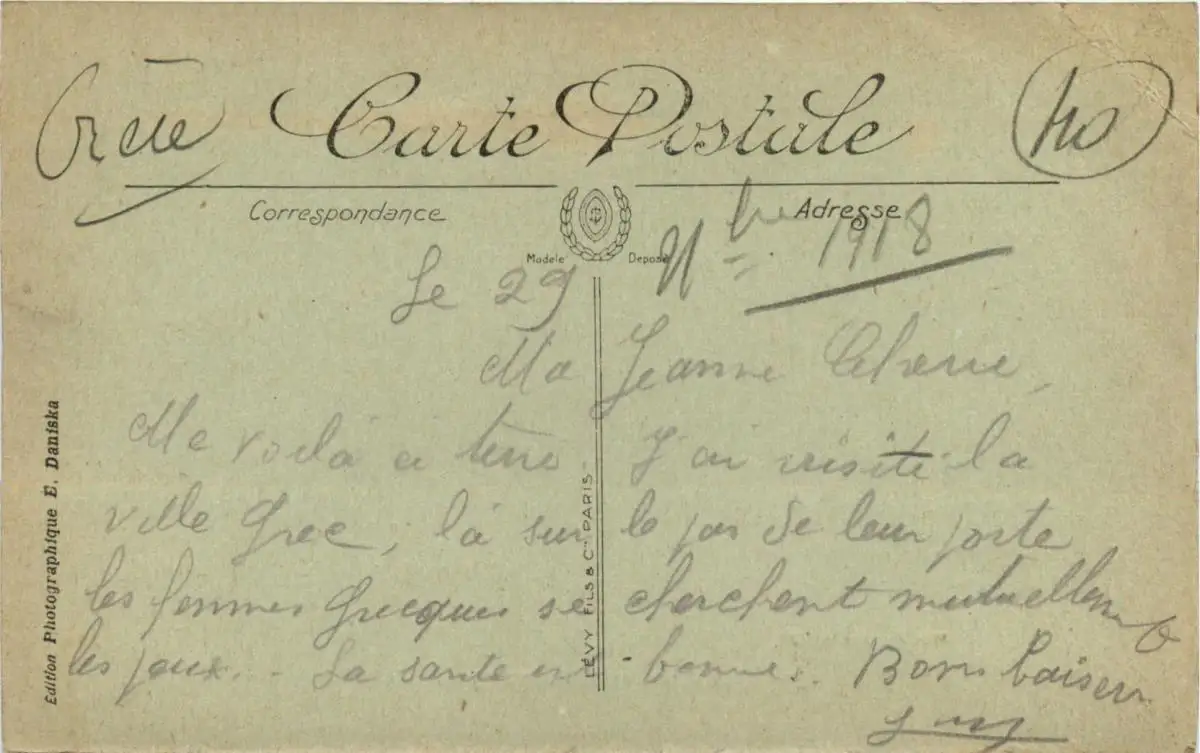 Crète
Carte Postale
Correspondance
Adresse
Modele Deposé
Le 29 9bre 1918
Ma Jeanne Chérie,
Me voilà à terre J'ai visité la
ville Grec, là sur le pas de leur porte
les femmes Grecques se cherchent mutuellement
les poux. - La santé est bonne. Bons baisers
Edition Photographique E. Daniska
LÉVY FILS & Cie PARIS